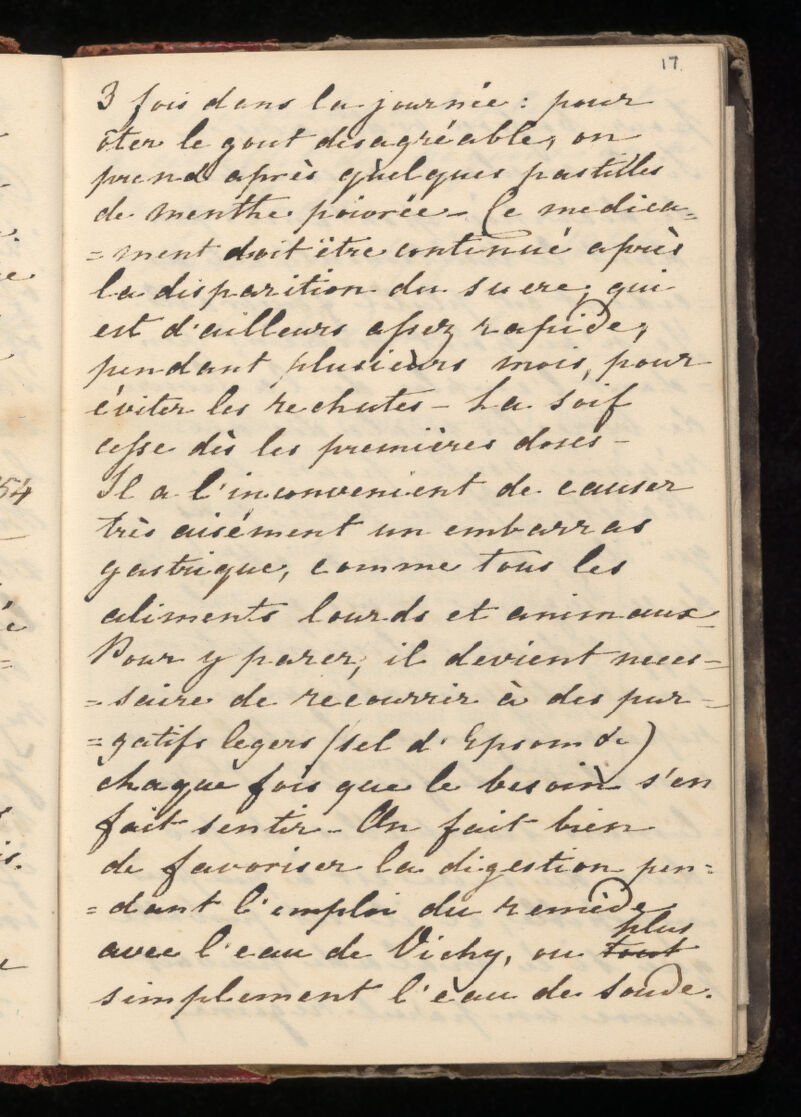 17.
3 fois dans la journée : pour
ôter le gout désagréable, on
prend après quelques pastilles
de menthe poivrée - Ce medica=
=ment doit être continué après
la disparition du sucre, qui
est d'ailleurs assez rapide,
pendant plusieurs mois, pour
éviter les rechutes - La soif
cesse dès les premières doses -
Il a l'inconvenient de causer
très aisément un embarras
gastrique, comme tous les
aliments lourds et animaux -
Pour y parer, il devient neces-
=saire de recourrir à des pur-
=gatifs legers (sel d'Epsom &c)
chaque fois que le besoin s'en
fait sentir - On fait bien
de favoriser la digestion pen=
=dant l'emploi du remède
plus
avec l'eau de Vichy, ou tout
simplement l'eau de soude.
54